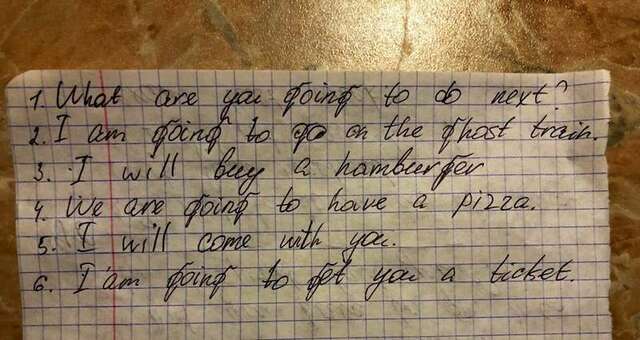 1. What are you going to do next?
2. I am going to go on the ghost train.
3. I will buy a hamburger
4. We are going to have a pizza.
5. I will come with you.
6. I am going to get you a ticket.